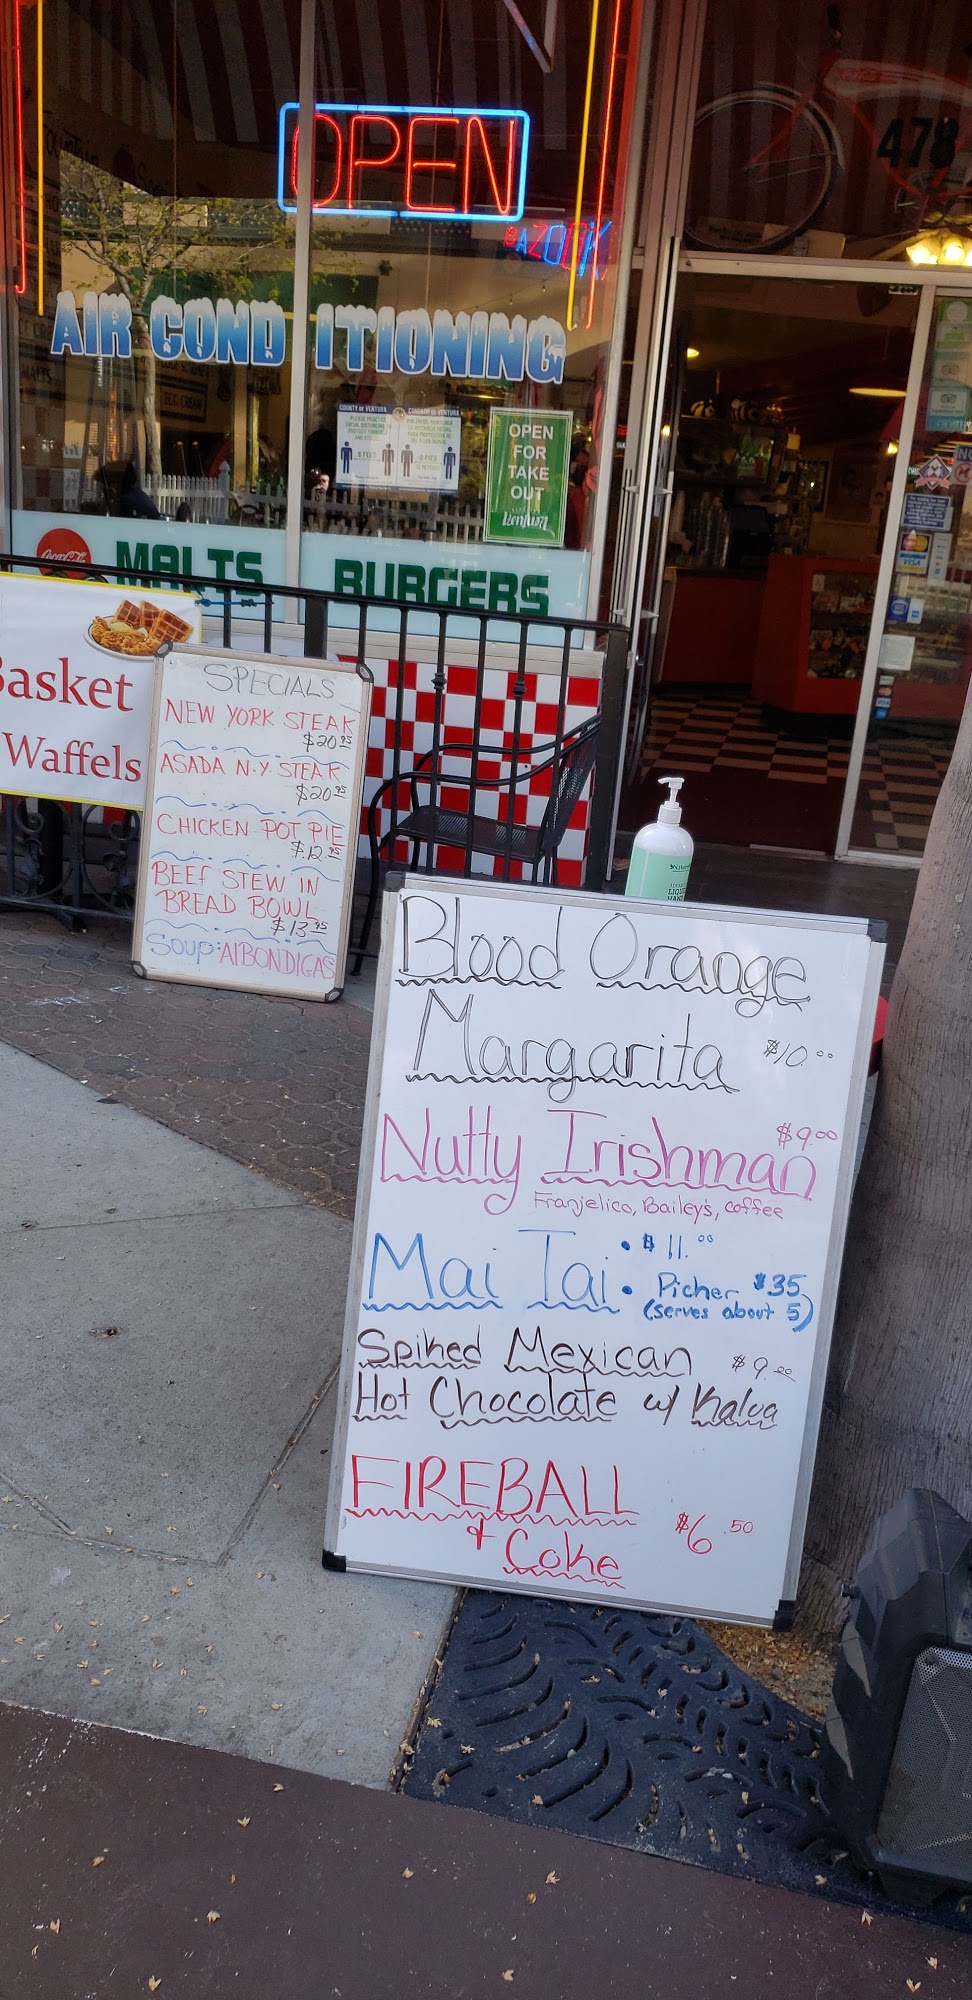 OPEN
478
KAZOOK
AIR CONDITIONING
EGG CREAM
COUNTY OF VENTURA
CONDADO DE VENTURA
PLEASE PRACTICE
SOCIAL DISTANCING TO
6 FEET
6 PIES
OPEN
FOR
TAKE
OUT
Ventura
VISA
Coca-Cola
MALTS BURGERS
Basket
Waffels
SPECIALS
NEW YORK STEAK
$20.95
ASADA N.Y. STEAK
$20.95
CHICKEN POT PIE
$.12.95
BEEF STEW IN
BREAD BOWL
$13.95
SOUP: AlBONDIGAS
Blood Orange
Margarita $10.00
Nutty Irishman $9.00
Franjelico, Bailey's, coffee
Mai Tai • $11.00
• Picher $35
(serves about 5)
Spiked Mexican $9.00
Hot Chocolate w/ Kalua
FIREBALL
& Coke $6.50